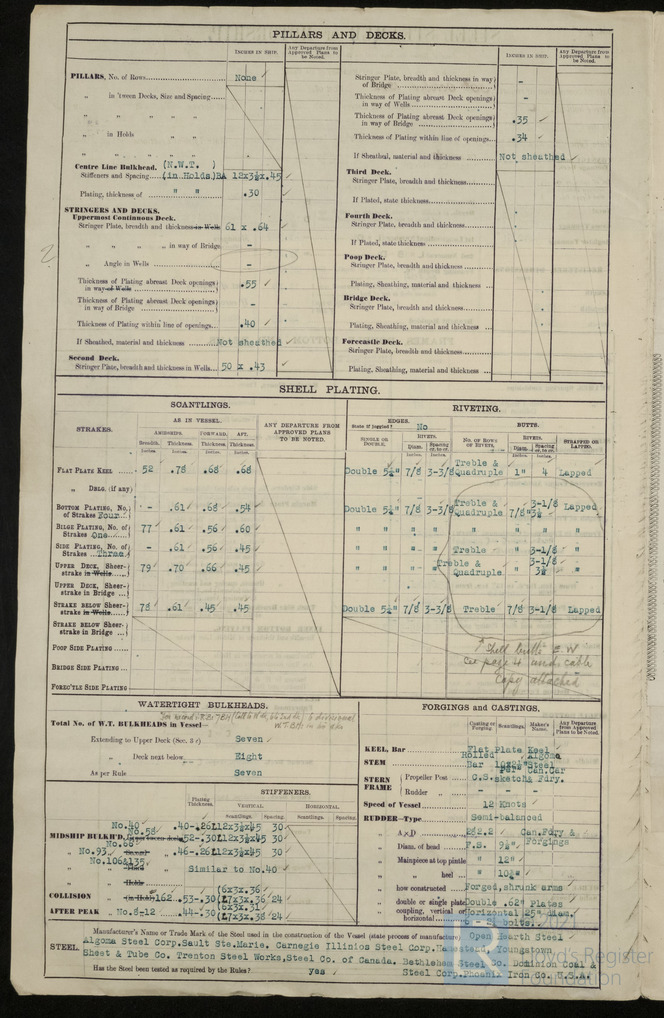 PILLARS AND DECKS.
INCHES IN SHIP.
Any Departure from Approved Plans to be Noted.
PILLARS, No. of Rows None
„ in 'tween Decks, Size and Spacing
„ „ „ „
„ in Holds „ „
„ „ „ „
Centre Line Bulkhead. (N.W.T. )
Stiffeners and Spacing (in Holds) BA 12x3½x.45
Plating, thickness of " " .30
STRINGERS AND DECKS.
Uppermost Continuous Deck.
Stringer Plate, breadth and thickness in Wells 61 x .64
„ „ „ „ in way of Bridge -
„ Angle in Wells -
Thickness of Plating abreast Deck openings in way of Wells .55
Thickness of Plating abreast Deck openings in way of Bridge -
Thickness of Plating within line of openings .40
If Sheathed, material and thickness Not sheathed
Second Deck.
Stringer Plate, breadth and thickness in Wells 50 x .43
INCHES IN SHIP.
Any Departure from Approved Plans to be Noted.
Stringer Plate, breadth and thickness in way of Bridge -
Thickness of Plating abreast Deck openings in way of Wells -
Thickness of Plating abreast Deck openings in way of Bridge .35
Thickness of Plating within line of openings .34
If Sheathed, material and thickness Not sheathed
Third Deck.
Stringer Plate, breadth and thickness
If Plated, state thickness
Fourth Deck.
Stringer Plate, breadth and thickness
If Plated, state thickness
Poop Deck.
Stringer Plate, breadth and thickness
Plating, Sheathing, material and thickness
Bridge Deck.
Stringer Plate, breadth and thickness
Plating, Sheathing, material and thickness
Forecastle Deck.
Stringer Plate, breadth and thickness
Plating, Sheathing, material and thickness
SHELL PLATING.
SCANTLINGS.
RIVETING.
STRAKES.
AS IN VESSEL.
AMIDSHIPS. FORWARD. AFT.
Breadth. Thickness. Thickness. Thickness.
ANY DEPARTURE FROM APPROVED PLANS TO BE NOTED.
EDGES. State if joggled? No
BUTTS.
SINGLE OR DOUBLE. RIVETS. Diam. Spacing cr. to cr.
NO. OF ROWS OF RIVETS. RIVETS. Diam. Spacing cr. to cr. STRAPPED OR LAPPED.
FLAT PLATE KEEL 52 .78 .68 .68 Double 5¼" 7/8 3-3/8 Treble & Quadruple 1" 4 Lapped
„ DBLG. (if any)
BOTTOM PLATING, No. of Strakes Four - .61 .68 .54 Double 5¼" 7/8 3-3/8 Treble & Quadruple 7/8" 3-1/8 3½ Lapped
BILGE PLATING, No. of Strakes One 77 .61 .56 .60 " " " " " " "
SIDE PLATING, No. of Strakes Three - .61 .56 .45 " " " Treble " 3-1/8 "
UPPER DECK, Sheerstrake in Wells 79 .70 .66 .45 " " " Treble & Quadruple " 3-1/8 3½ "
UPPER DECK, Sheerstrake in Bridge
STRAKE BELOW Sheerstrake in Wells 78 .61 .45 .45 Double 5¼" 7/8 3-3/8 Treble 7/8 3-1/8 Lapped
STRAKE BELOW Sheerstrake in Bridge
POOP SIDE PLATING
BRIDGE SIDE PLATING
FOREC'TLE SIDE PLATING
Shell butts E.W
See page 4 and cable
copy attached
WATERTIGHT BULKHEADS.
Total No. of W.T. BULKHEADS in Vessel—
Extending to Upper Deck (Sec. 3) Seven
„ Deck next below Eight
As per Rule Seven
STIFFENERS.
Plating Thickness. VERTICAL. HORIZONTAL.
Scantlings. Spacing. Scantlings. Spacing.
No.40 .40-.26 L12x3½x45 30
MIDSHIP BULKH'D, No.58 .52-.30 L12x3½x45 30
„ No.93 .46-.26 L12x3½x45 30
„ No.106&135 Similar to No.40
COLLISION „ (in Hold) 162 .53-.30 (6x3x.36 (L7x3x.36 24
AFTER PEAK „ No.8-12 .44-.30 (6x3x.31 (L7x3x.36 24
FORGINGS and CASTINGS.
Casting or Forging. Scantlings. Maker's Name. Any Departure from Approved Plans to be Noted.
KEEL, Bar Flat Plate Keel
STEM Rolled Bar 10x2½" Algoma Steel
STERN FRAME { Propeller Post C.S. per sketch Can.Car & Fdry.
Rudder „ -
Speed of Vessel 12 Knots
RUDDER—Type Semi-balanced
„ A x D 282.2 Can.Fdry & Forgings
„ Diam. of head F.S. 9¼"
„ Mainpiece at top pintle " 12"
„ „ heel " 10¾"
„ how constructed Forged, shrunk arms
„ double or single plate Double .62" Plates
„ coupling, vertical or horizontal Horizontal 25" diam. bolts.
STEEL.
Manufacturer's Name or Trade Mark of the Steel used in the construction of the Vessel (state process of manufacture) Open Hearth Steel
Algoma Steel Corp. Sault Ste.Marie. Carnegie Illinios Steel Corp. Homestead, Youngstown
Sheet & Tube Co. Trenton Steel Works, Steel Co. of Canada. Bethlehem Steel Co. Dominion Coal &
Has the Steel been tested as required by the Rules? yes Steel Corp. Phoenix Iron Co. U.S.A.
Lloyd's Register
Foundation